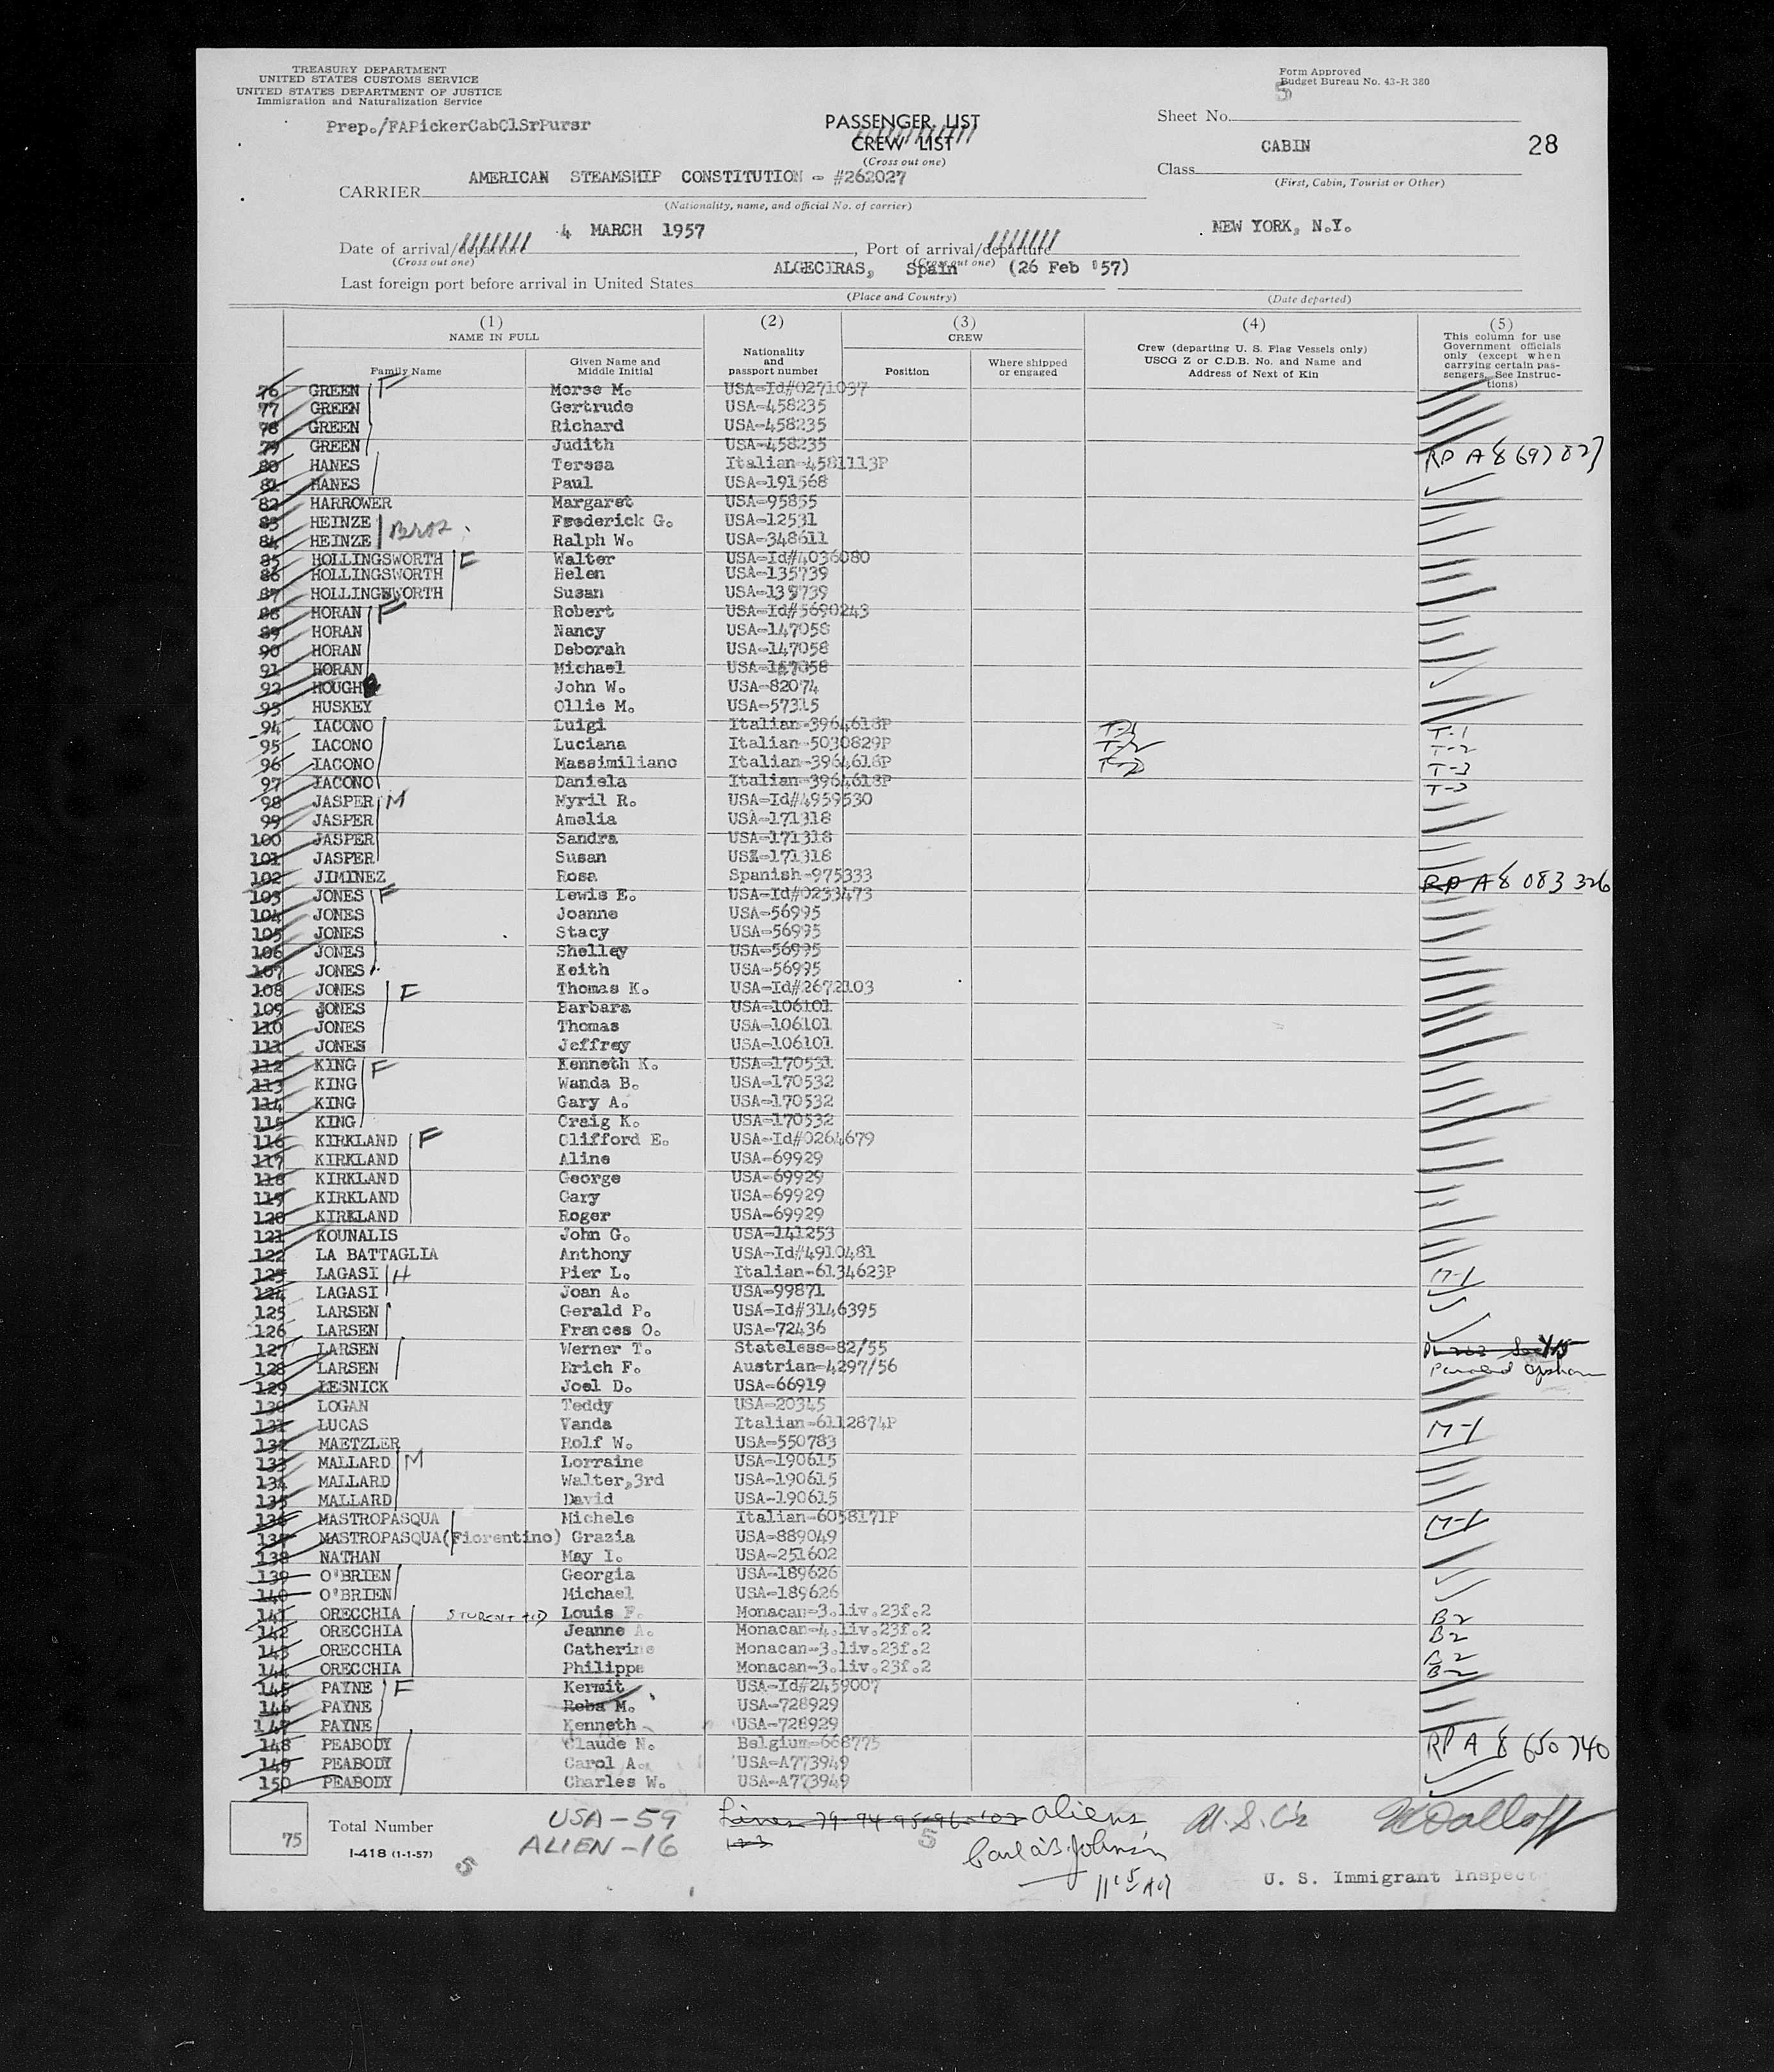 TREASURY DEPARTMENT
UNITED STATES CUSTOMS SERVICE
UNITED STATES DEPARTMENT OF JUSTICE
Immigration and Naturalization Service
Prep./FAPickerCabClSrPursr
Form Approved
Budget Bureau No. 43-R 380
5
Sheet No.
PASSENGER LIST
CREW LIST
(Cross out one)
CABIN
28
Class
(First, Cabin, Tourist or Other)
AMERICAN STEAMSHIP CONSTITUTION - #262027
CARRIER
(Nationality, name, and official No. of carrier)
4 MARCH 1957
NEW YORK, N.Y.
Date of arrival/departure , Port of arrival/departure
(Cross out one) (Cross out one)
ALGECIRAS, Spain (26 Feb '57)
Last foreign port before arrival in United States
(Place and Country) (Date departed)
(1) (2) (3) (4) (5)
NAME IN FULL
Family Name
Given Name and Middle Initial
Nationality and passport number
CREW
Position
Where shipped or engaged
Crew (departing U. S. Flag Vessels only)
USCG Z or C.D.B. No. and Name and
Address of Next of Kin
This column for use
Government officials
only (except when
carrying certain pas-
sengers. See Instruc-
tions)
76 GREEN F Morse M. USA-Id#0271037
77 GREEN Gertrude USA-458235
78 GREEN Richard USA-458235
79 GREEN Judith USA-458235
80 HANES Teresa Italian-4581113P RP A8 697 827
81 HANES Paul USA-191568
82 HARROWER Margaret USA-95855
83 HEINZE Frederick G. USA-12531
84 HEINZE Ralph W. USA-348611
85 HOLLINGSWORTH F Walter USA-Id#4036080
86 HOLLINGSWORTH Helen USA-135739
87 HOLLINGSWORTH Susan USA-135739
88 HORAN F Robert USA-Id#5690243
89 HORAN Nancy USA-147058
90 HORAN Deborah USA-147058
91 HORAN Michael USA-147058
92 HOUGH John W. USA-82074
93 HUSKEY Ollie M. USA-57315
94 IACONO Luigi Italian-3964618P T-1 T-1
95 IACONO Luciana Italian-5030829P T-2 T-2
96 IACONO Massimiliano Italian-3964618P T-2 T-3
97 IACONO Daniela Italian-3964618P T-3
98 JASPER M Myril R. USA-Id#4959530
99 JASPER Amelia USA-171318
100 JASPER Sandra USA-171318
101 JASPER Susan USA-171318
102 JIMINEZ Rosa Spanish-975333 RP A8 083 326
103 JONES F Lewis E. USA-Id#0233473
104 JONES Joanne USA-56995
105 JONES Stacy USA-56995
106 JONES Shelley USA-56995
107 JONES Keith USA-56995
108 JONES F Thomas K. USA-Id#2672103
109 JONES Barbara USA-106101
110 JONES Thomas USA-106101
111 JONES Jeffrey USA-106101
112 KING F Kenneth K. USA-170531
113 KING Wanda B. USA-170532
114 KING Gary A. USA-170532
115 KING Craig K. USA-170532
116 KIRKLAND F Clifford E. USA-Id#0264679
117 KIRKLAND Aline USA-69929
118 KIRKLAND George USA-69929
119 KIRKLAND Gary USA-69929
120 KIRKLAND Roger USA-69929
121 KOUNALIS John G. USA-141253
122 LA BATTAGLIA Anthony USA-Id#4910481
123 LAGASI H Pier L. Italian-6134623P M-1
124 LAGASI Joan A. USA-99871
125 LARSEN Gerald P. USA-Id#3146395
126 LARSEN Frances O. USA-72436
127 LARSEN Werner T. Stateless-82/55
128 LARSEN Erich F. Austrian-4297/56
129 LESNICK Joel D. USA-66919
130 LOGAN Teddy USA-20345
131 LUCAS Vanda Italian-6112874P M-1
132 MAETZLER Rolf W. USA-550783
133 MALLARD M Lorraine USA-190615
134 MALLARD Walter,3rd USA-190615
135 MALLARD David USA-190615
136 MASTROPASQUA Michele Italian-6058171P M-1
137 MASTROPASQUA(Fiorentino) Grazia USA-889049
138 NATHAN May I. USA-251602
139 O'BRIEN Georgia USA-189626
140 O'BRIEN Michael USA-189626
141 ORECCHIA STUDENT Louis F. Monacan-3.liv.23f.2 B2
142 ORECCHIA Jeanne A. Monacan-4.liv.23f.2 B2
143 ORECCHIA Catherine Monacan-3.liv.23f.2 B2
144 ORECCHIA Philippe Monacan-3.liv.23f.2 B2
145 PAYNE F Kermit USA-Id#2459007
146 PAYNE Reba M. USA-728929
147 PAYNE Kenneth USA-728929
148 PEABODY Claude N. Belgium-668775 RP A 8 650 740
149 PEABODY Carol A. USA-A773949
150 PEABODY Charles W. USA-A773949
75 Total Number
USA-59
ALIEN-16
Lines 79-94-95-96-102 aliens
123
5
U. S. Immigrant Inspect
I-418 (1-1-57)
5